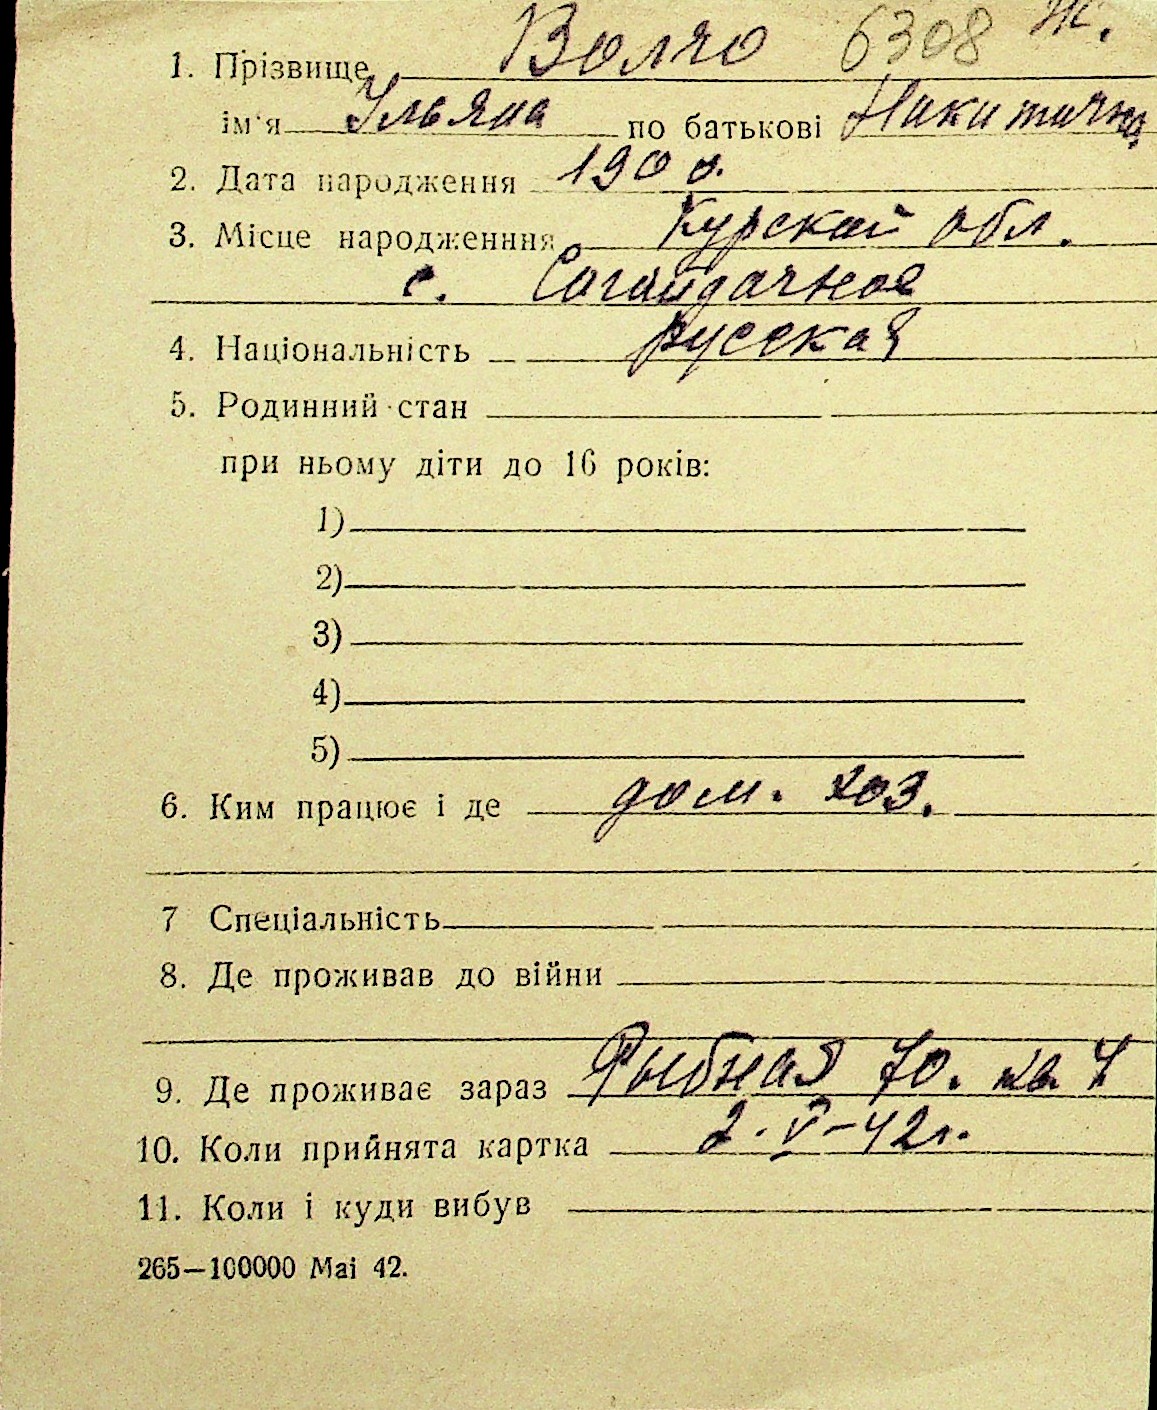 1. Прізвище Волчо 6308 Ж.
ім'я Ульяна по батькові Никитична
2. Дата народження 1900.
3. Місце народженння Курской обл.
с. Согайдачное
4. Національність русская
5. Родинний стан
при ньому діти до 16 років:
1)
2)
3)
4)
5)
6. Ким працює і де дом. хоз.
7 Спеціальність
8. Де проживав до війни
9. Де проживає зараз Рыбная 70. кв. 4
10. Коли прийнята картка 2.V-42г.
11. Коли і куди вибув
265—100000 Маі 42.